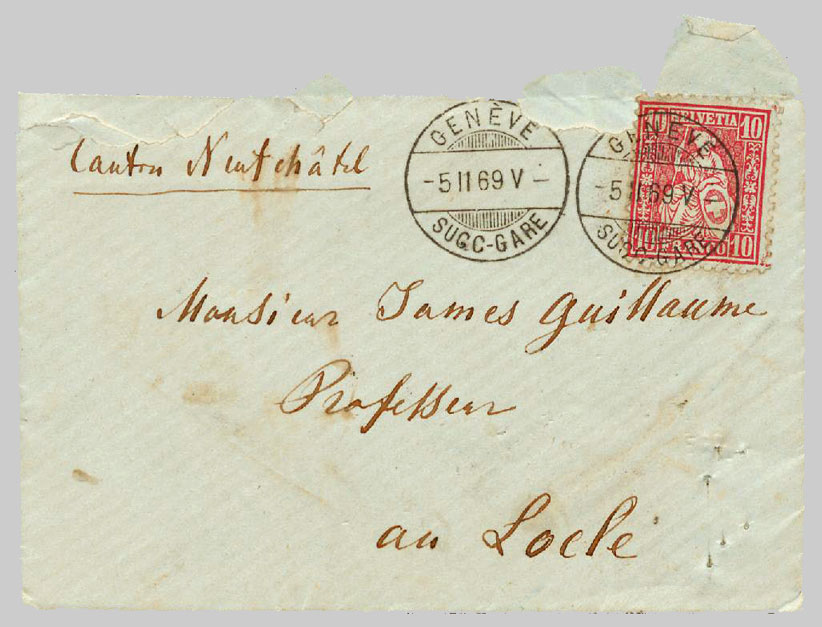 Canton Neutchâtel
GENÈVE
-5 II 69 V-
SUCC-GARE
GENÈVE
-5 II 69 V-
SUCC-GARE
10 HELVETIA 10
10 10
Monsieur James Guillaume
Professeur
au Locle